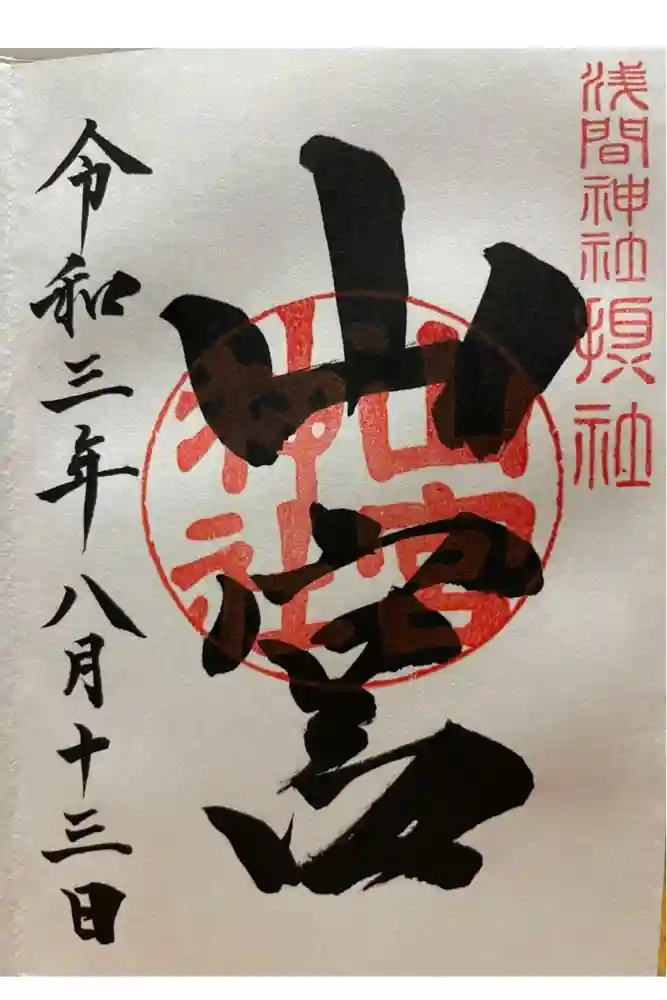 浅間神社摂社
山宮
山宮
神社
令和三年八月十三日